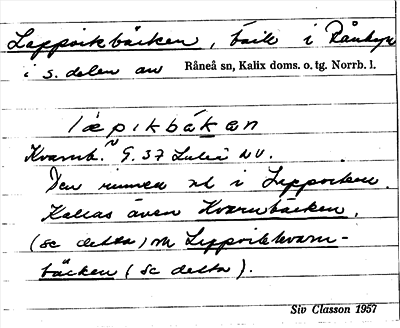 Leppvikbäcken, bäck i Rånbyn
i s. delen av Råneå sn, Kalix doms. o. tg. Norrb. l.
læpikbäkan
Kvarnb. G. 37 Luleå NV.
Den rinner ut i Leppviken.
Kallas även Kvarnbäcken,
(se detta) och Leppvikkvarn-
bäcken (se detta).
Siv Classon 1957